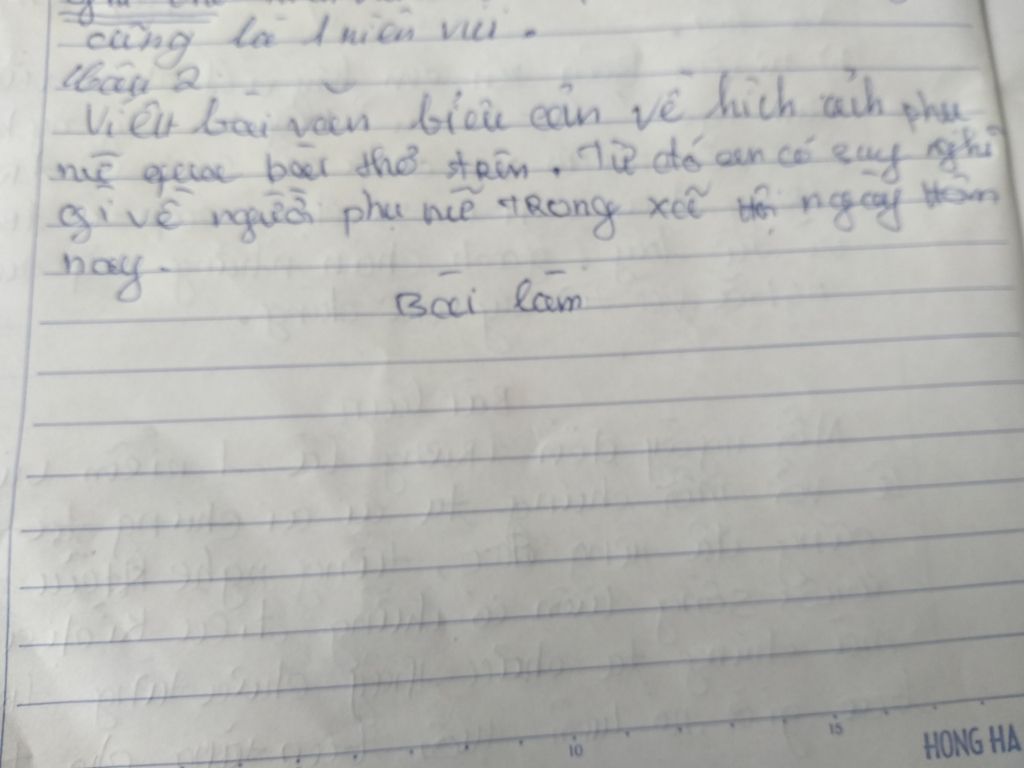 cũng là 1 niềm vui.
Câu 2
Viết bài văn biểu cảm về hích ảnh phụ
nữ qua bài thơ trên. Từ đó em có suy nghĩ
gì về người phụ nữ trong xã hội ngày hôm
nay.
Bài làm
10
15
HONG HA